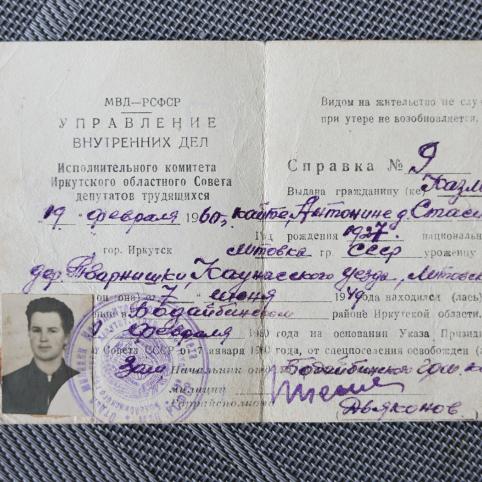 МВД—РСФСР
УПРАВЛЕНИЕ
ВНУТРЕННИХ ДЕЛ
Исполнительного комитета
Иркутского областного Совета
депутатов трудящихся
19 февраля 1960
гор. Иркутск
Видом на жительство не слу
при утере не возобновляется,
Справка № Я
Выдана гражданину (ке) Казлы
Антонине д. Стаси
Год рождения 1927 национально
литовка гр. СССР уроженцу
дер. Каунасского уезда, Литовск
он (она) с 7 июня 1949 находился (лась)
в Бодайбинском районе Иркутской области.
февраля 1960 года на основании Указа Прези
Совета СССР от 7 января 1960, от спецпоселения освобождён (а)
Зам Начальник Бодайбинского
милиции
Дьяконов